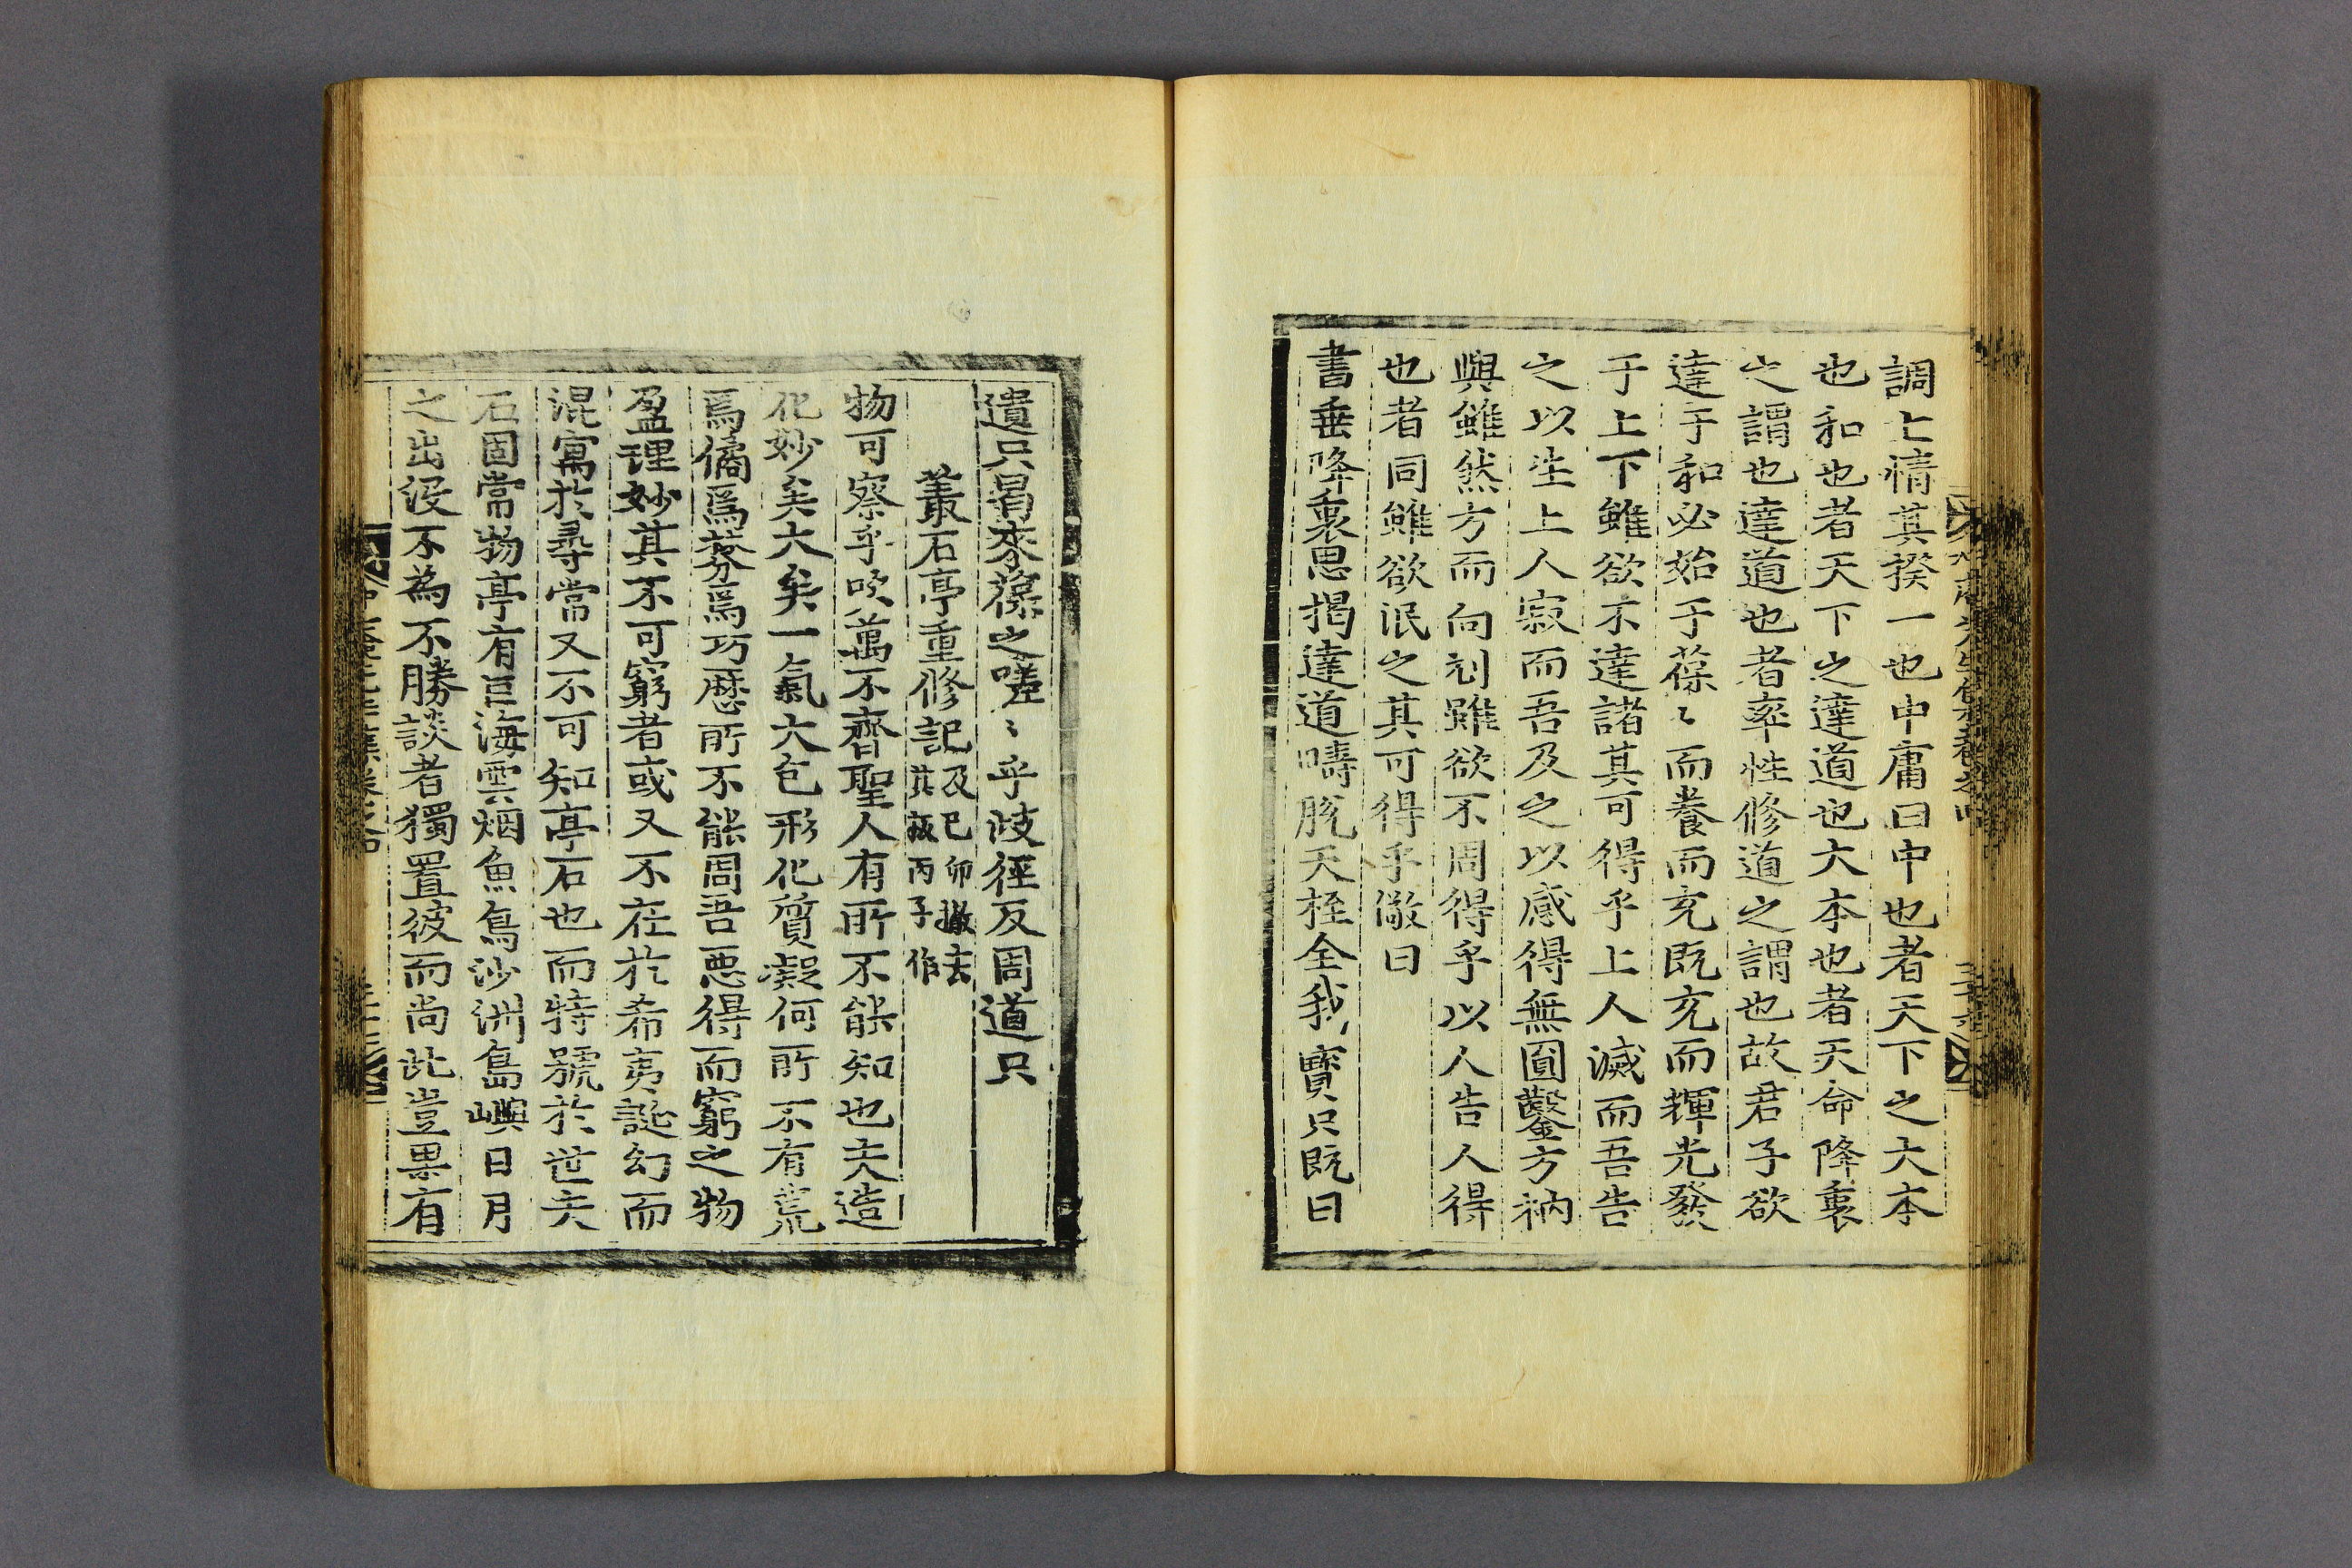 調上情其揆一也中庸曰中也者天下之大本
也和也者天下之達道也大本也者天命降衷
之謂也達道也者率性修道之謂也故君子欲
達于和必始于葆〻而養而充旣充而輝光發
于上下雖欲不達諸其可得乎上人滅而吾告
之以生上人寂而吾及之以感得無圓鑿方枘
與雖然方而向刓雖欲不周得乎以人告人得
也者同雖欲泯之其可得乎儆曰
書垂降衷思揭達道疇脫天桎全我寶只旣曰
遺只曷來葆之嗟〻乎歧徑反周道只
叢石亭重修記
及己卯撤去
其板丙子作
物可察乎吹萬不齊聖人有所不能知也夫造
化妙矣大矣一氣大包形化質凝何所不有荒
焉僪焉蓊焉巧歷所不能周吾惡得而窮之物
盈理妙其不可窮者或又不在於希夷誕幻而
混寓於尋常又不可知亭石也而特號於世夫
石固常物亭有巨海雲烟魚鳥沙洲島嶼日月
之出沒不為不勝談者獨置彼而尚此豈果有